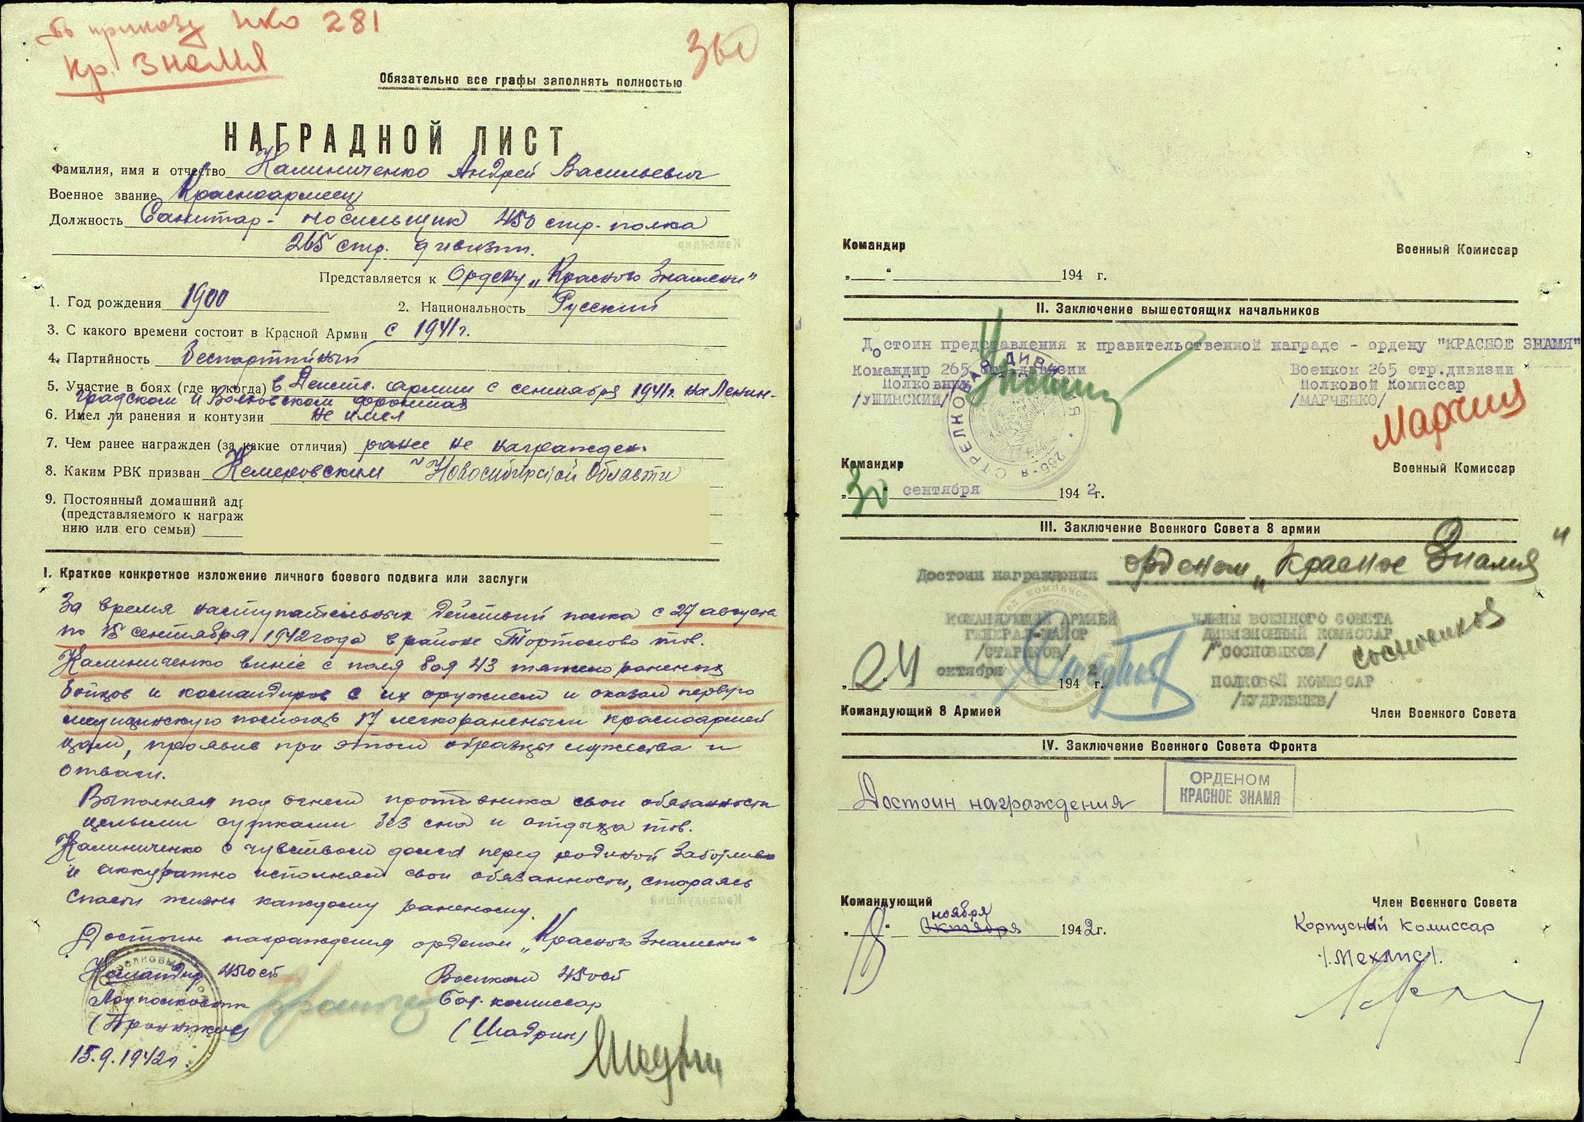 по приказу НКО 281
Кр. Знамя
360
Обязательно все графы заполнять полностью
НАГРАДНОЙ ЛИСТ
Фамилия, имя и отчество Калиниченко Андрей Васильевич
Военное звание Красноармеец
Должность Санитар-носильщик 450 стр. полка
265 стр. дивизии.
Представляется к Ордену „Красного Знамени"
1. Год рождения 1900 2. Национальность Русский
3. С какого времени состоит в Красной Армии с 1941 г.
4. Партийность Беспартийный
5. Участие в боях (где и когда) в Действ. армии с сентября 1941 г. на Ленин-
градском и Волховском фронтах
6. Имел ли ранения и контузии не имел
7. Чем ранее награжден (за какие отличия) ранее не награжден
8. Каким РВК призван Кемеровским Новосибирской Области
9. Постоянный домашний адр
(представляемого к награж
нию или его семьи)
I. Краткое конкретное изложение личного боевого подвига или заслуги
За время наступательных действий полка с 27 августа
по 15 сентября 1942 года в районе Тортолово тов.
Калиниченко вынес с поля боя 43 тяжело раненых
бойцов и командиров с их оружием и оказал первую
медицинскую помощь 17 легкораненым красноармей
цам, проявив при этом образцы мужества и
отваги.
Выполняя под огнем противника свои обязанности
целыми сутками без сна и отдыха тов.
Калиниченко с чувством долга перед родиной заботливо
и аккуратно исполнял свои обязанности, стараясь
спасти жизнь каждому раненому.
Достоин награждения орденом „Красного Знамени"
Командир 450 сп Военком 450 сп
Подполковник Бат. комиссар
(Шадрин)
15.9.1942 г.
Командир Военный Комиссар
„ " 194 г.
II. Заключение вышестоящих начальников
Достоин представления к правительственной награде - ордену "КРАСНОЕ ЗНАМЯ"
Командир 265 стр.дивизии Военком 265 стр.дивизии
Полковник Полковой Комиссар
/УШИНСКИЙ/ /МАРЧЕНКО/
Командир Военный Комиссар
„30" сентября 1942 г.
III. Заключение Военного Совета 8 армии
Достоин награждения орденом „Красное Знамя"
КОМАНДУЮЩИЙ АРМИЕЙ ЧЛЕНЫ ВОЕННОГО СОВЕТА
ГЕНЕРАЛ-МАЙОР ДИВИЗИОННЫЙ КОМИССАР
/СТАРИКОВ/ /СОСНОВИКОВ/ Сосновиков
„24" октября 1942 г. ПОЛКОВОЙ КОМИССАР
/КУДРЯВЦЕВ/
Командующий 8 Армией Член Военного Совета
IV. Заключение Военного Совета Фронта
Достоин награждения ОРДЕНОМ
КРАСНОЕ ЗНАМЯ
Командующий Член Военного Совета
ноября
октября 1942 г. Корпусный Комиссар
/Мехлис/.